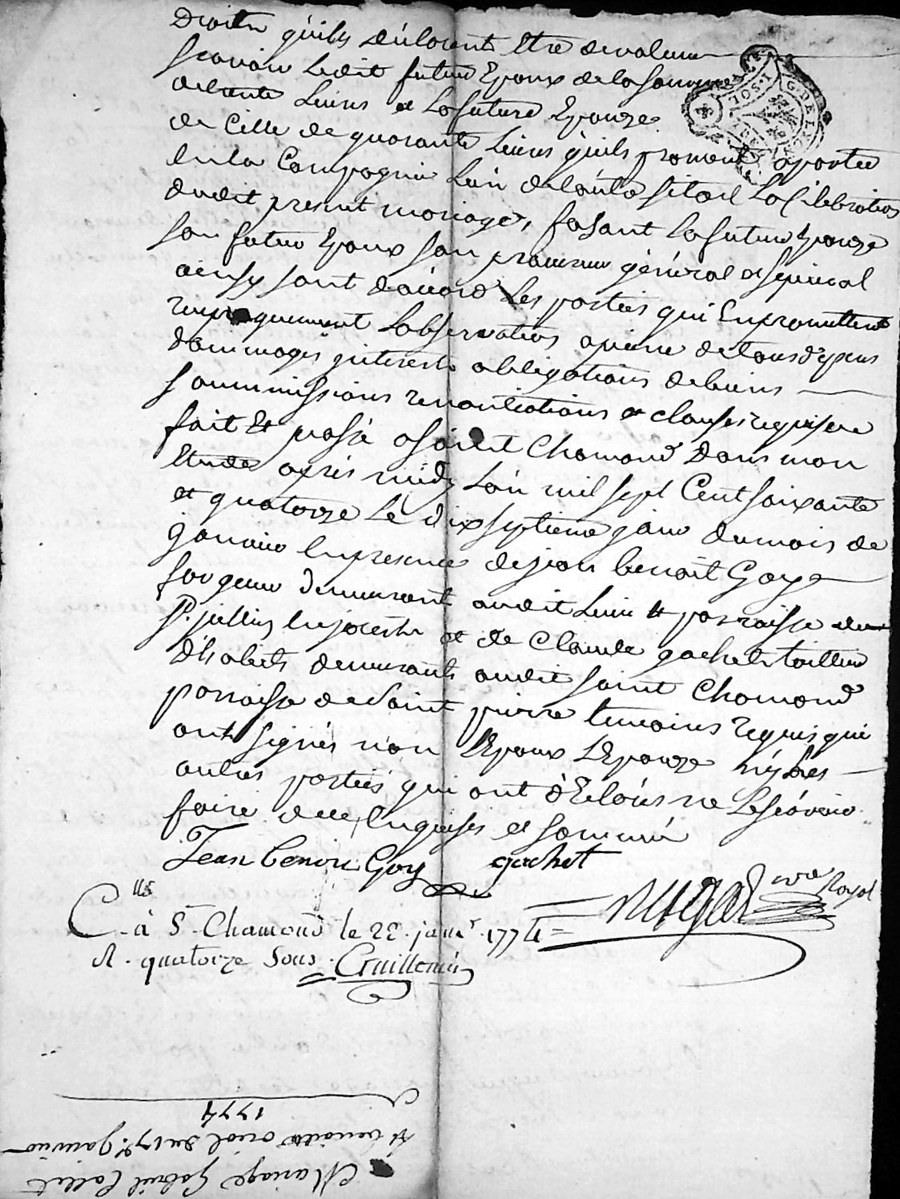 droits qu'ils déclarent être de valeur
sçavoir ledit futur Epoux de la somme
de trente Livres et La future Epouze
de Celle de quarante Livres qu'ils promettent aporter
en la Compagnie L'un de L'autre sitot La Célébration
dudit present mariage, faisant La future Epouze
son futur Epoux son procureur général et special
ainsy sont d'acord Les parties qui En promettent
reciproquement L'observation a peine de tous depens
dommages interets obligations de biens
soummissions renontiations et clauses requises
fait et passé a saint Chamond dans mon
Etude après midy L'an mil sept Cent soixante
et quatorze Le dix septieme jour du mois de
janvier En presence de jean benoit Goy
forgeur demeurant audit Lieu et parroisse
St. jullien en jarest et de Claude gachet tailleur
d'habits demeurants audit saint Chamond
parroisse de Saint pierre temoins requis qui
ont signés non L'Epoux L'Epouze ny Les
autres parties qui ont déclarés ne Le sçavoir
faire de ce Enquises et sommé
Jean benoit Goy gachet
nore Royal
Clle
à S. Chamond le 22 janr. 1774
R. quatorze sous. Guillemin
G. DE LYON
1. SOL
Mariage Gabriel
et oriol du 17e. janvier
1774